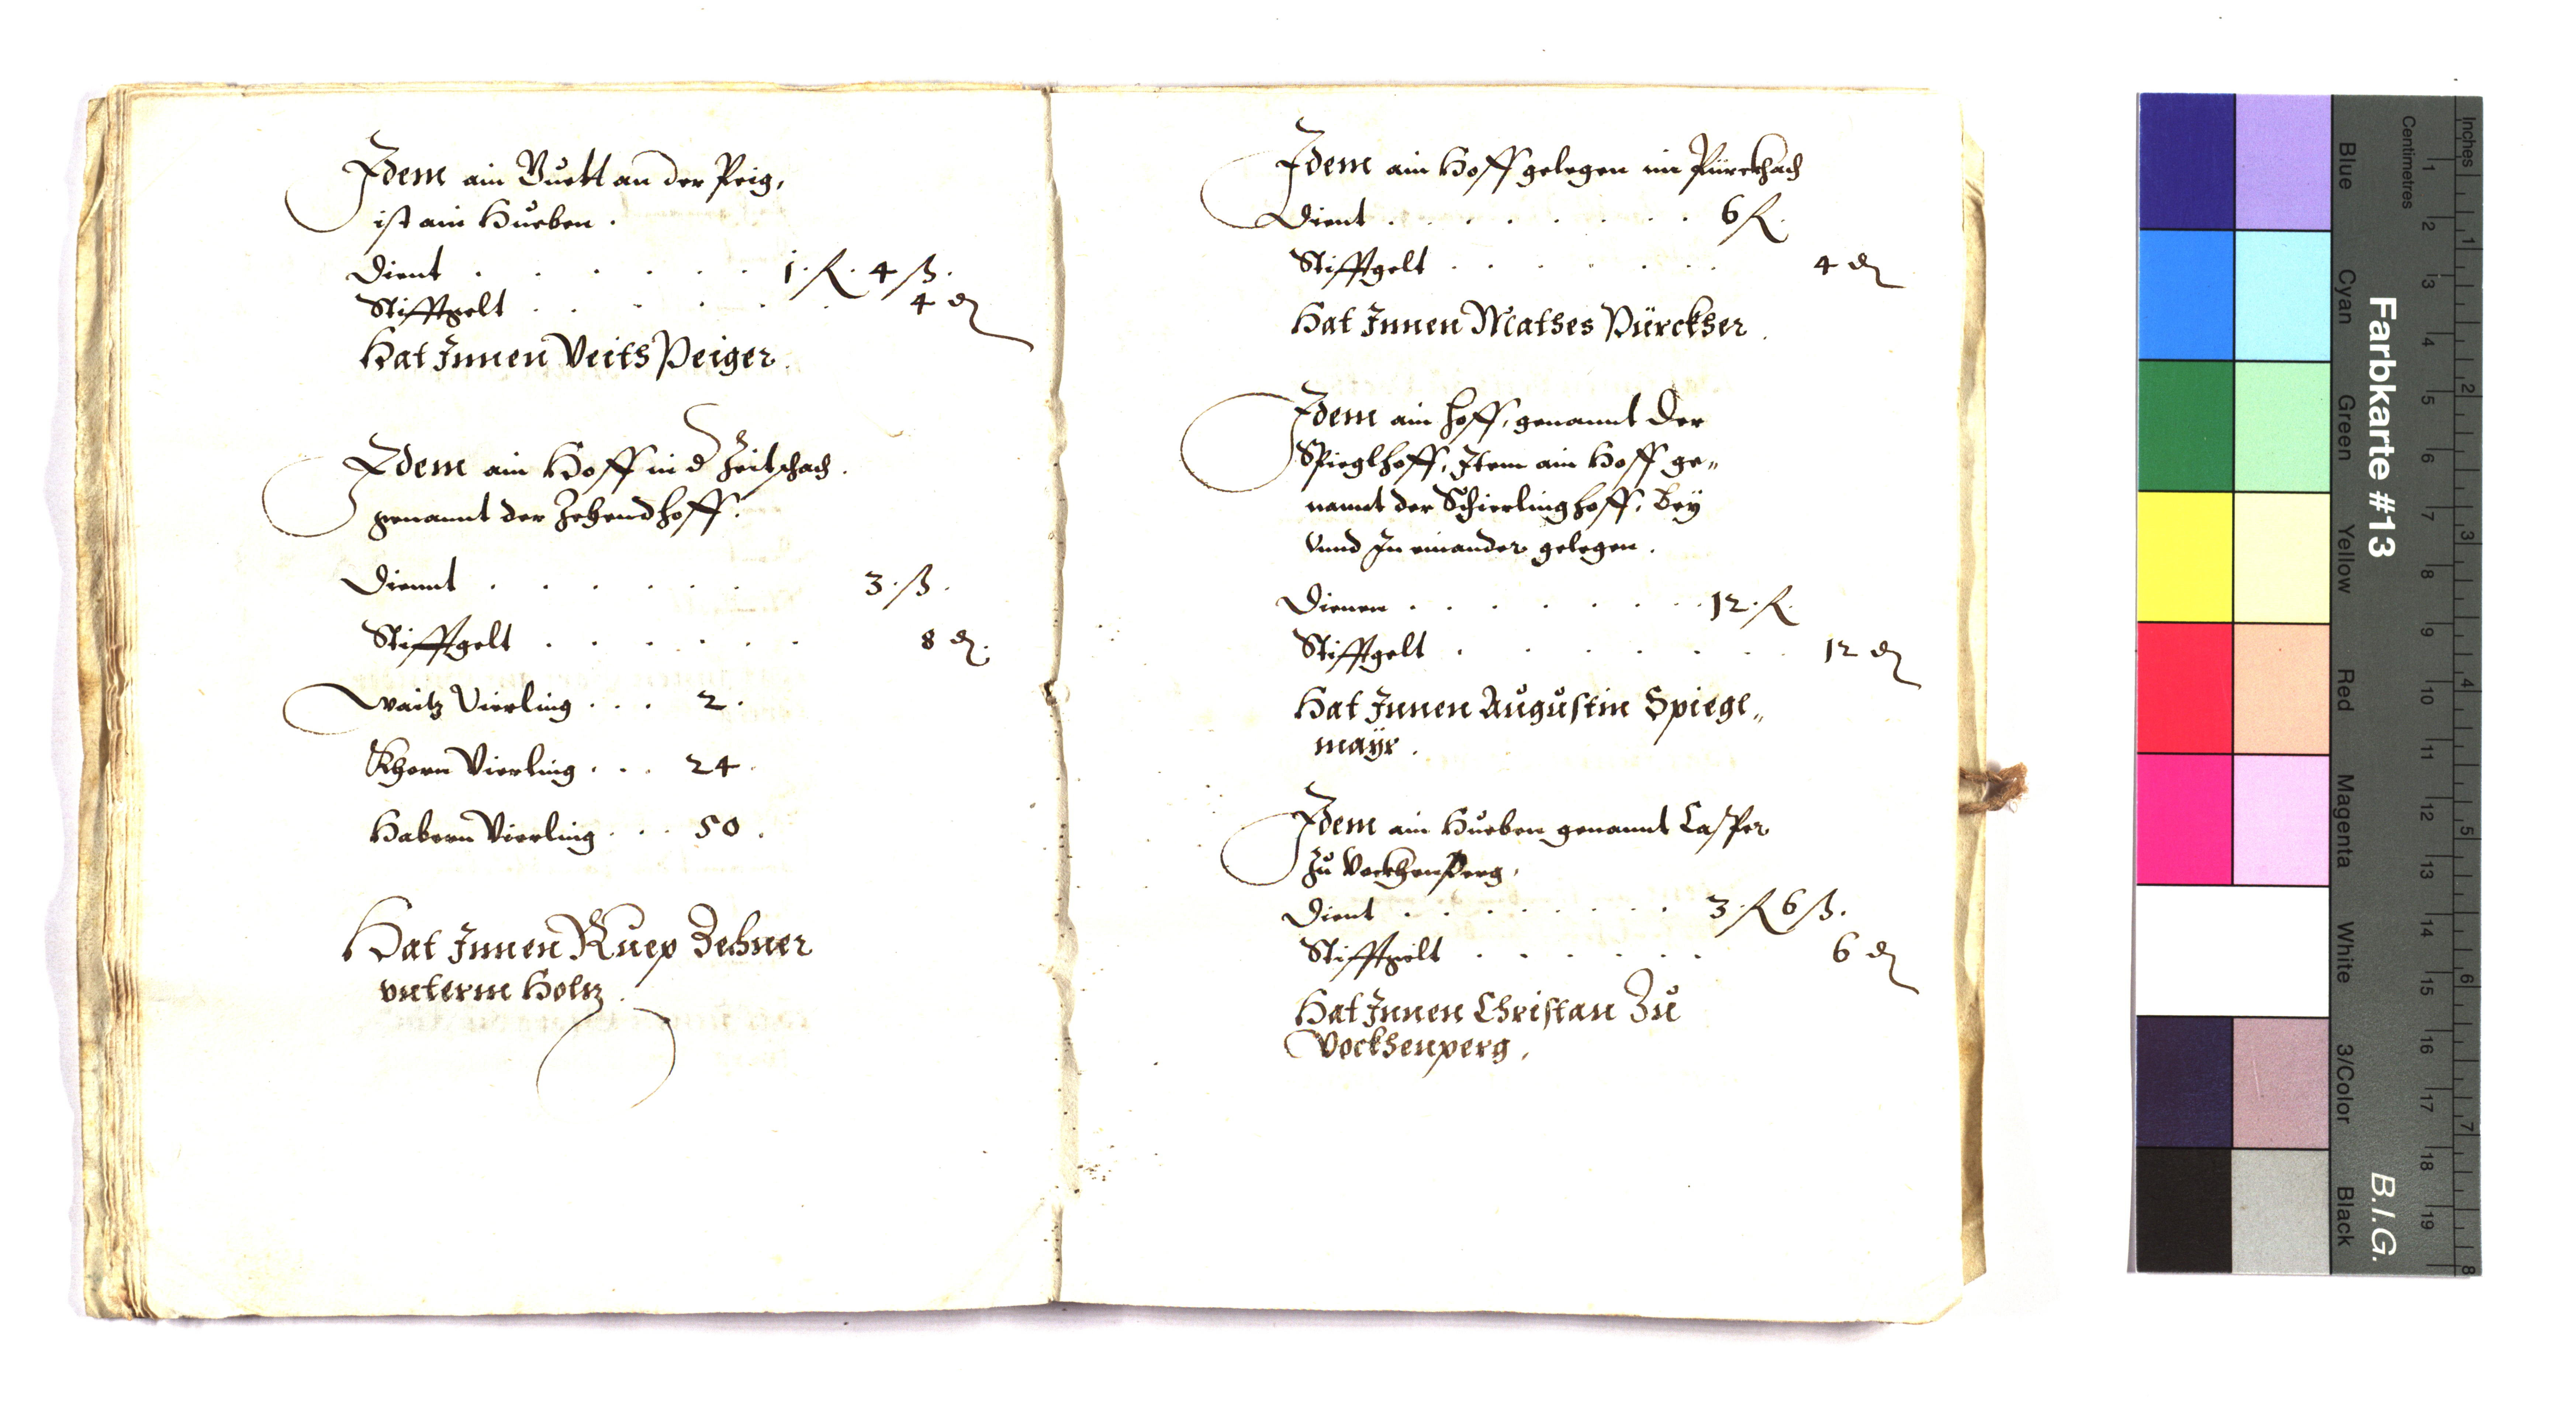 Idem ain Guett an der Peig,
ist ain Hueben.
Dient . . . . . . 1. fl. 4 ß.
Stifftgelt . . . . . 4 d
Hat Innen Veits Peiger.
Idem ain Hoff in d Zeitschach.
genannt der Zehendhoff.
Diennt . . . . . . 3. ß.
Stifftgelt . . . . . . 8 d.
Waitz Vierling . . . 2.
Khorn Vierling . . . 24.
Habern Vierling . . . 50.
Hat Innen Ruep Zehner
unterm Holtz.
Idem ain Hoff gelegen im Pürckhach
Dient . . . . . . . . 6 fl.
Stifftgelt . . . . . . . 4 d
Hat Innen Mathes Pürckher.
Idem ain hoff, genannt Der
Spieglhoff, Item ain Hoff ge„
nannt der Schierlinghoff, Bey
vnnd In einander gelegen.
Dienen . . . . . . . . 12. fl.
Stifftgelt . . . . . . . . 12 d
Hat Innen Augustin Spiegl„
mayr.
Idem ain Hueben genannt Casper
zu Vockhenperg,
Dient . . . . . . . . 3. fl 6 ß.
Stifftgelt . . . . . . 6 d
Hat Innen Christan Zu
Vockhenperg,
Farbkarte #13
B.I.G.
Inches
Centimetres
Blue
Cyan
Green
Yellow
Red
Magenta
White
3/Color
Black
1 2 3 4 5 6 7 8 9 10 11 12 13 14 15 16 17 18 19
1 2 3 4 5 6 7 8